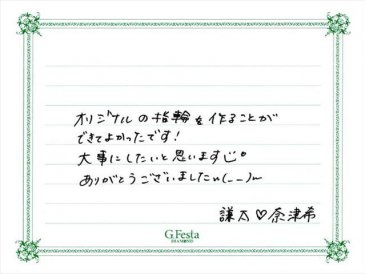 オリジナルの指輪を作ることが
できてよかったです!
大事にしたいと思います
ありがとうございましたm(__)m
謙太♡奈津希
G.Festa
DIAMOND